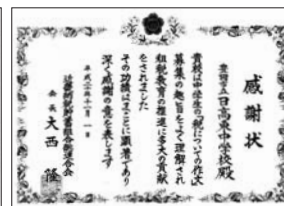 感謝状
豊岡市立日高東中学校殿
貴校は中学生の「税についての作文」
募集の趣旨をよく理解され
租税教育の推進に多大の貢献
をされました
その功績はまことに顕著であり
深く感謝の意を表します
平成二十年十一月一日
会長 大西隆